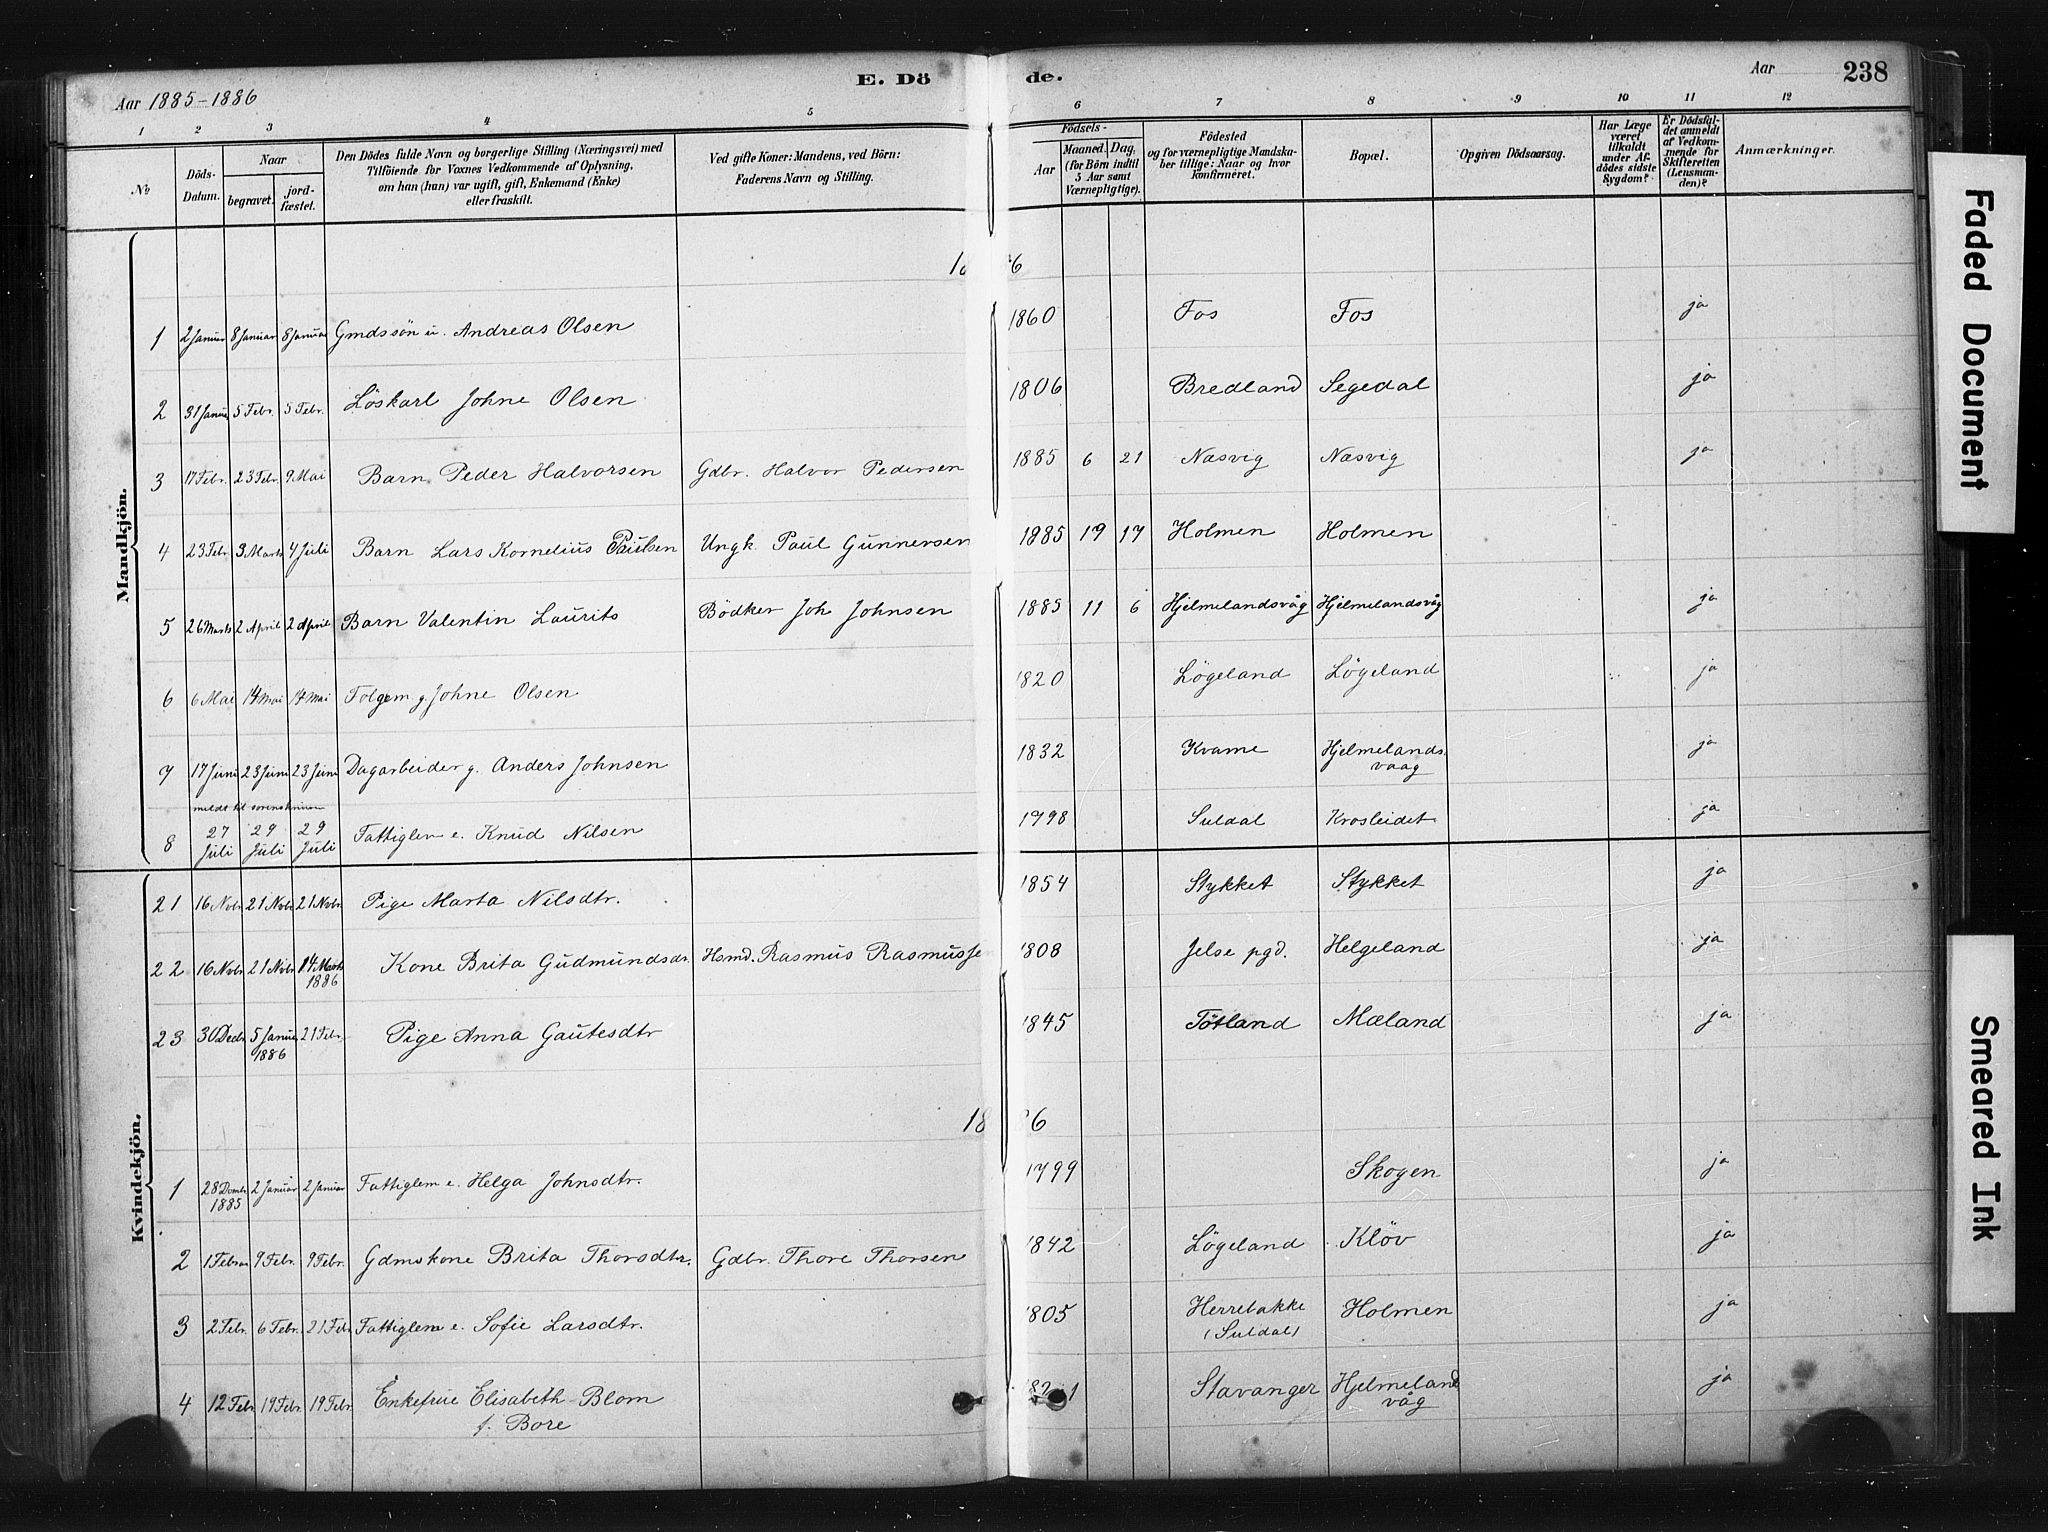 E. Döde.
Aar 1885-1886
Aar 238
1 2 3 4 5 6 7 8 9 10 11 12
No
Döds-Datum.
Naar begravet. jordfæstet.
Den Dödes fulde Navn og borgerlige Stilling (Næringsvei) med Tilföiende for Voxnes Vedkommende af Oplysning, om han (hun) var ugift, gift, Enkemand (Enke) eller fraskilt.
Ved gifte Koner: Mandens, ved Börn: Faderens Navn og Stilling.
Födsels-
Aar Maaned. Dag. (for Börn indtil 5 Aar samt Værnepligtige).
Födested og for værnepligtige Mandskaber tillige: Naar og hvor konfirmeret.
Bopæl.
Opgiven Dödsaarsag.
Har Læge været tilkaldt under Afdödes sidste Sygdom?
Er Dödsfaldet anmeldt af Vedkommende for Skifteretten (Lensmanden)?
Anmærkninger.
Mandkjön.
1 2 Januar 8 Januar 8 Januar Gmdssön u. Andreas Olsen 1860 Fos Fos ja
2 31 Januar 5 Febr. 5 Febr. Löskarl Johne Olsen 1806 Bredland Segedal ja
3 17 Febr. 23 Febr. 9 Mai Barn Peder Halvorsen Gdbr. Halvor Pedersen 1885 6 21 Næsvig Næsvig ja
4 23 Febr. 3 Marts 4 Juli Barn Lars Kornelius Paulsen Ungk. Paul Gunnersen 1885 19 17 Holmen Holmen
5 26 Marts 2 April 2 April Barn Valentin Laurits Bödker Joh Johnsen 1885 11 6 Hjelmelandsvåg Hjelmelandsvåg ja
6 6 Mai 14 Mai 14 Mai Folgem. g. Johne Olsen 1820 Lögeland Lögeland ja
7 17 Juni 23 Juni 23 Juni Dagarbeider g. Anders Johnsen 1832 Kvame Hjelmelandsvaag ja
meldt til sorenskriveren
8 27 Juli 29 Juli 29 Juli Fattiglem e. Knud Nilsen 1798 Suldal Krosleidet ja
Kvindekjön.
21 16 Nvbr. 21 Nvbr. 21 Nvbr. Pige Marta Nilsdtr. 1854 Stykket Stykket ja
22 16 Nvbr. 21 Nvbr. 14 Marts 1886 Kone Brita Gudmundsdr. Hsmd. Rasmus Rasmussen 1808 Jelse pgd. Helgeland ja
23 30 Decbr. 5 Januar 1886 21 Febr. Pige Anna Gautesdtr 1845 Tötland Mæland ja
18 6
1 28 Dcmbr 1885 2 Januar 2 Januar Fattiglem e. Helga Johnsdtr. 1799 Skogen ja
2 1 Februar 9 Febr. 9 Febr. Gdmskone Brita Thorsdtr. Gdbr. Thore Thorsen 1842 Lögeland Klöv ja
3 2 Febr. 6 Febr. 21 Febr. Fattiglem e. Sofie Larsdtr. 1805 Herrebakke (Suldal) Holmen ja
4 12 Febr. 19 Febr. 19 Febr. Enkefrue Elisabeth Blom f. Bore Stavanger Hjelmelandvåg ja
Faded Document
Smeared Ink